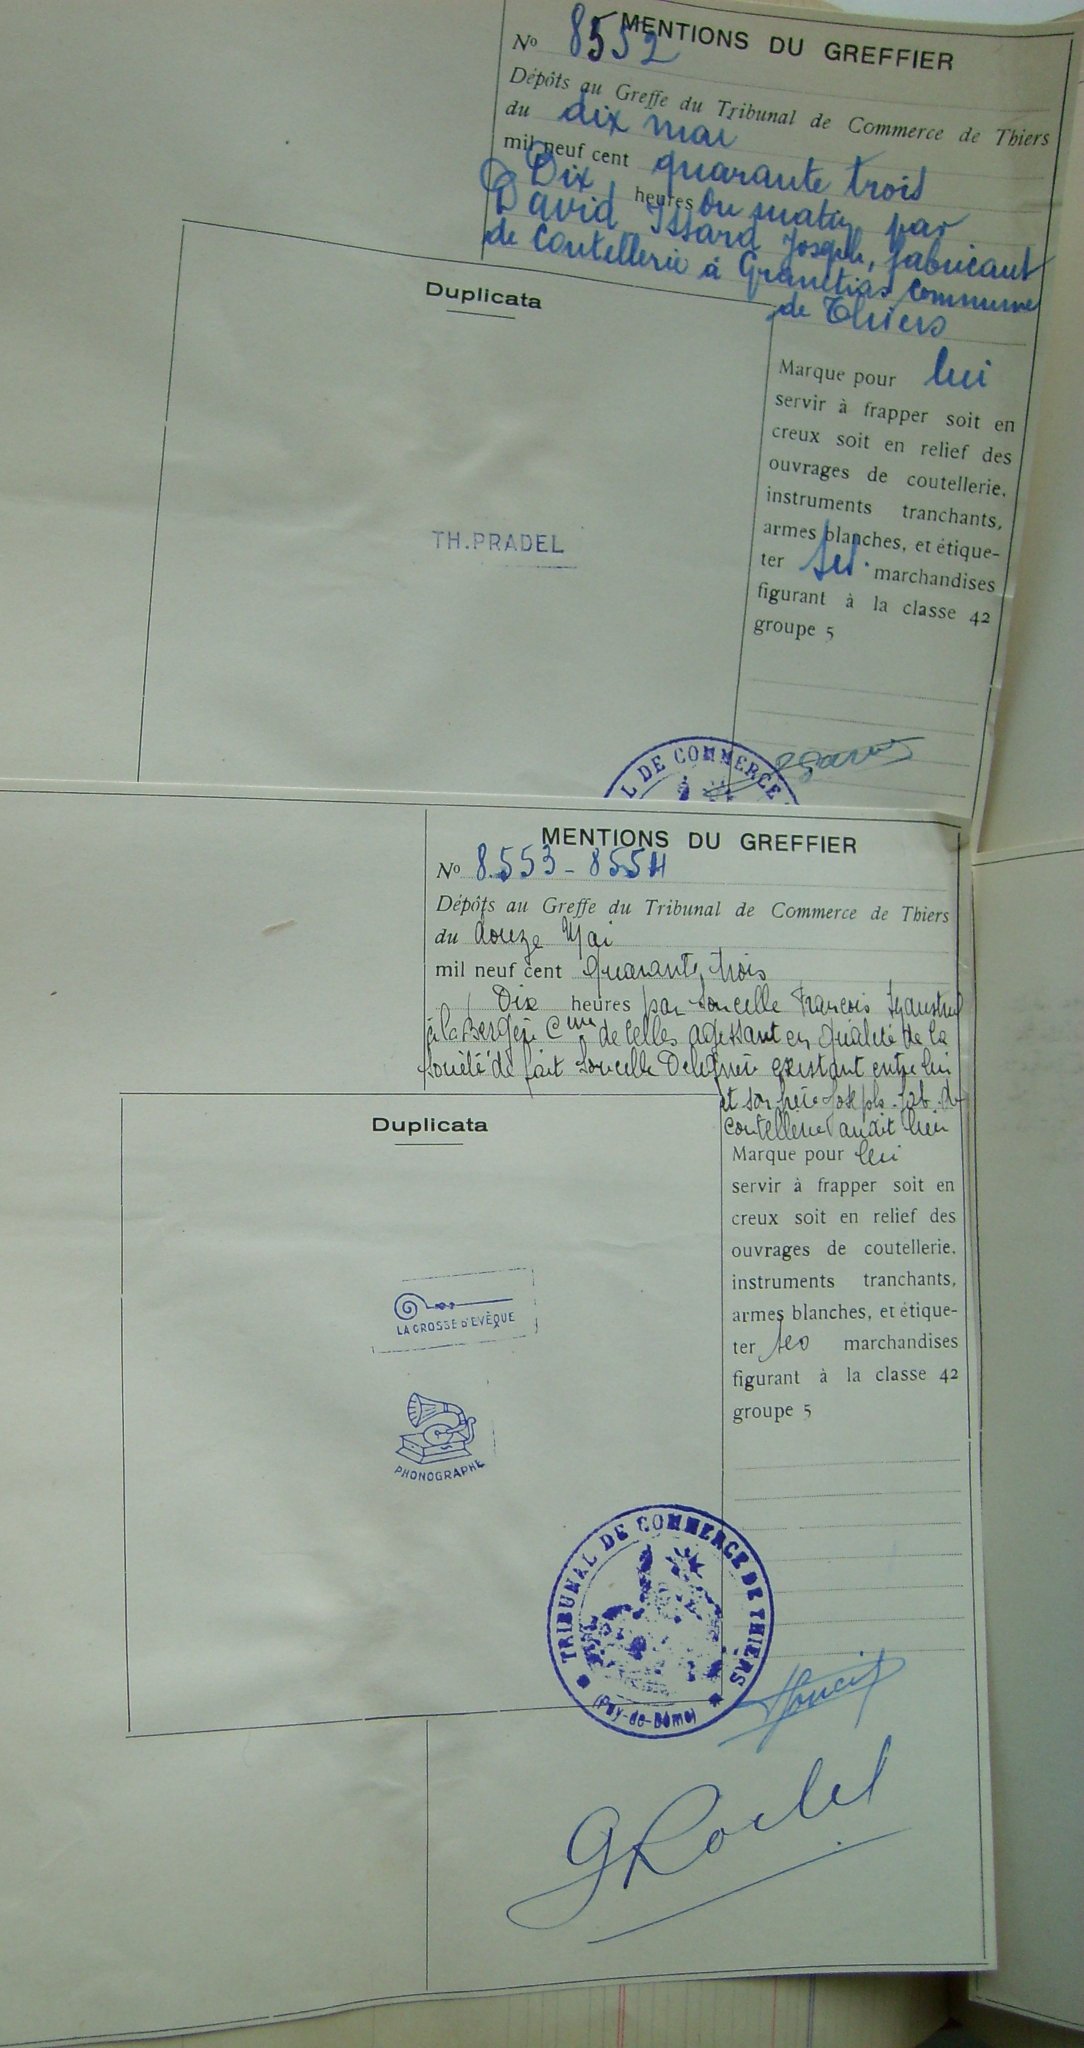 MENTIONS DU GREFFIER
No 8552
Dépôts au Greffe du Tribunal de Commerce de Thiers
du dix mai
mil neuf cent quarante trois
Dix heures du matin par
David Issard Joseph, fabricant
de Coutellerie à Granetias commune
de Thiers
Duplicata
TH.PRADEL
Marque pour lui
servir à frapper soit en
creux soit en relief des
ouvrages de coutellerie,
instruments tranchants,
armes blanches, et étique-
ter ses marchandises
figurant à la classe 42
groupe 5
L DE COMMERCE
MENTIONS DU GREFFIER
No 8.553 - 8554
Dépôts au Greffe du Tribunal de Commerce de Thiers
du douze Mai
mil neuf cent quarante trois
Dix heures par François
à la Cne de Celles agissant en qualité de la
Société de fait existant entre lui
et son frère Joseph fab. de
coutellerie audit lieu
Duplicata
LA CROSSE D'EVÊQUE
PHONOGRAPHE
Marque pour lui
servir à frapper soit en
creux soit en relief des
ouvrages de coutellerie,
instruments tranchants,
armes blanches, et étique-
ter ses marchandises
figurant à la classe 42
groupe 5
TRIBUNAL DE COMMERCE DE THIERS
(Puy-de-Dôme)